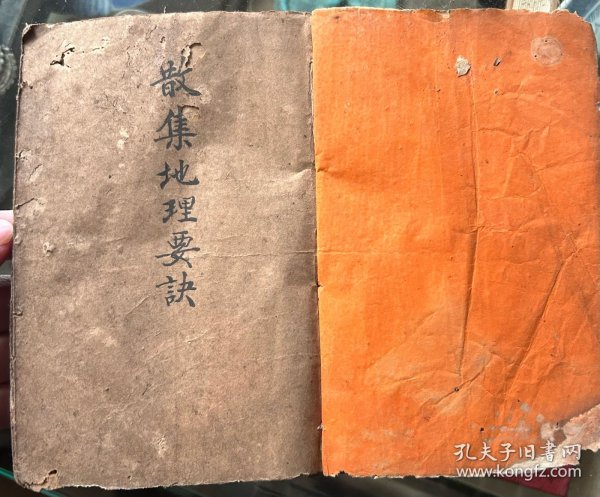 散集地理要訣
孔夫子旧书网
www.kongfz.com